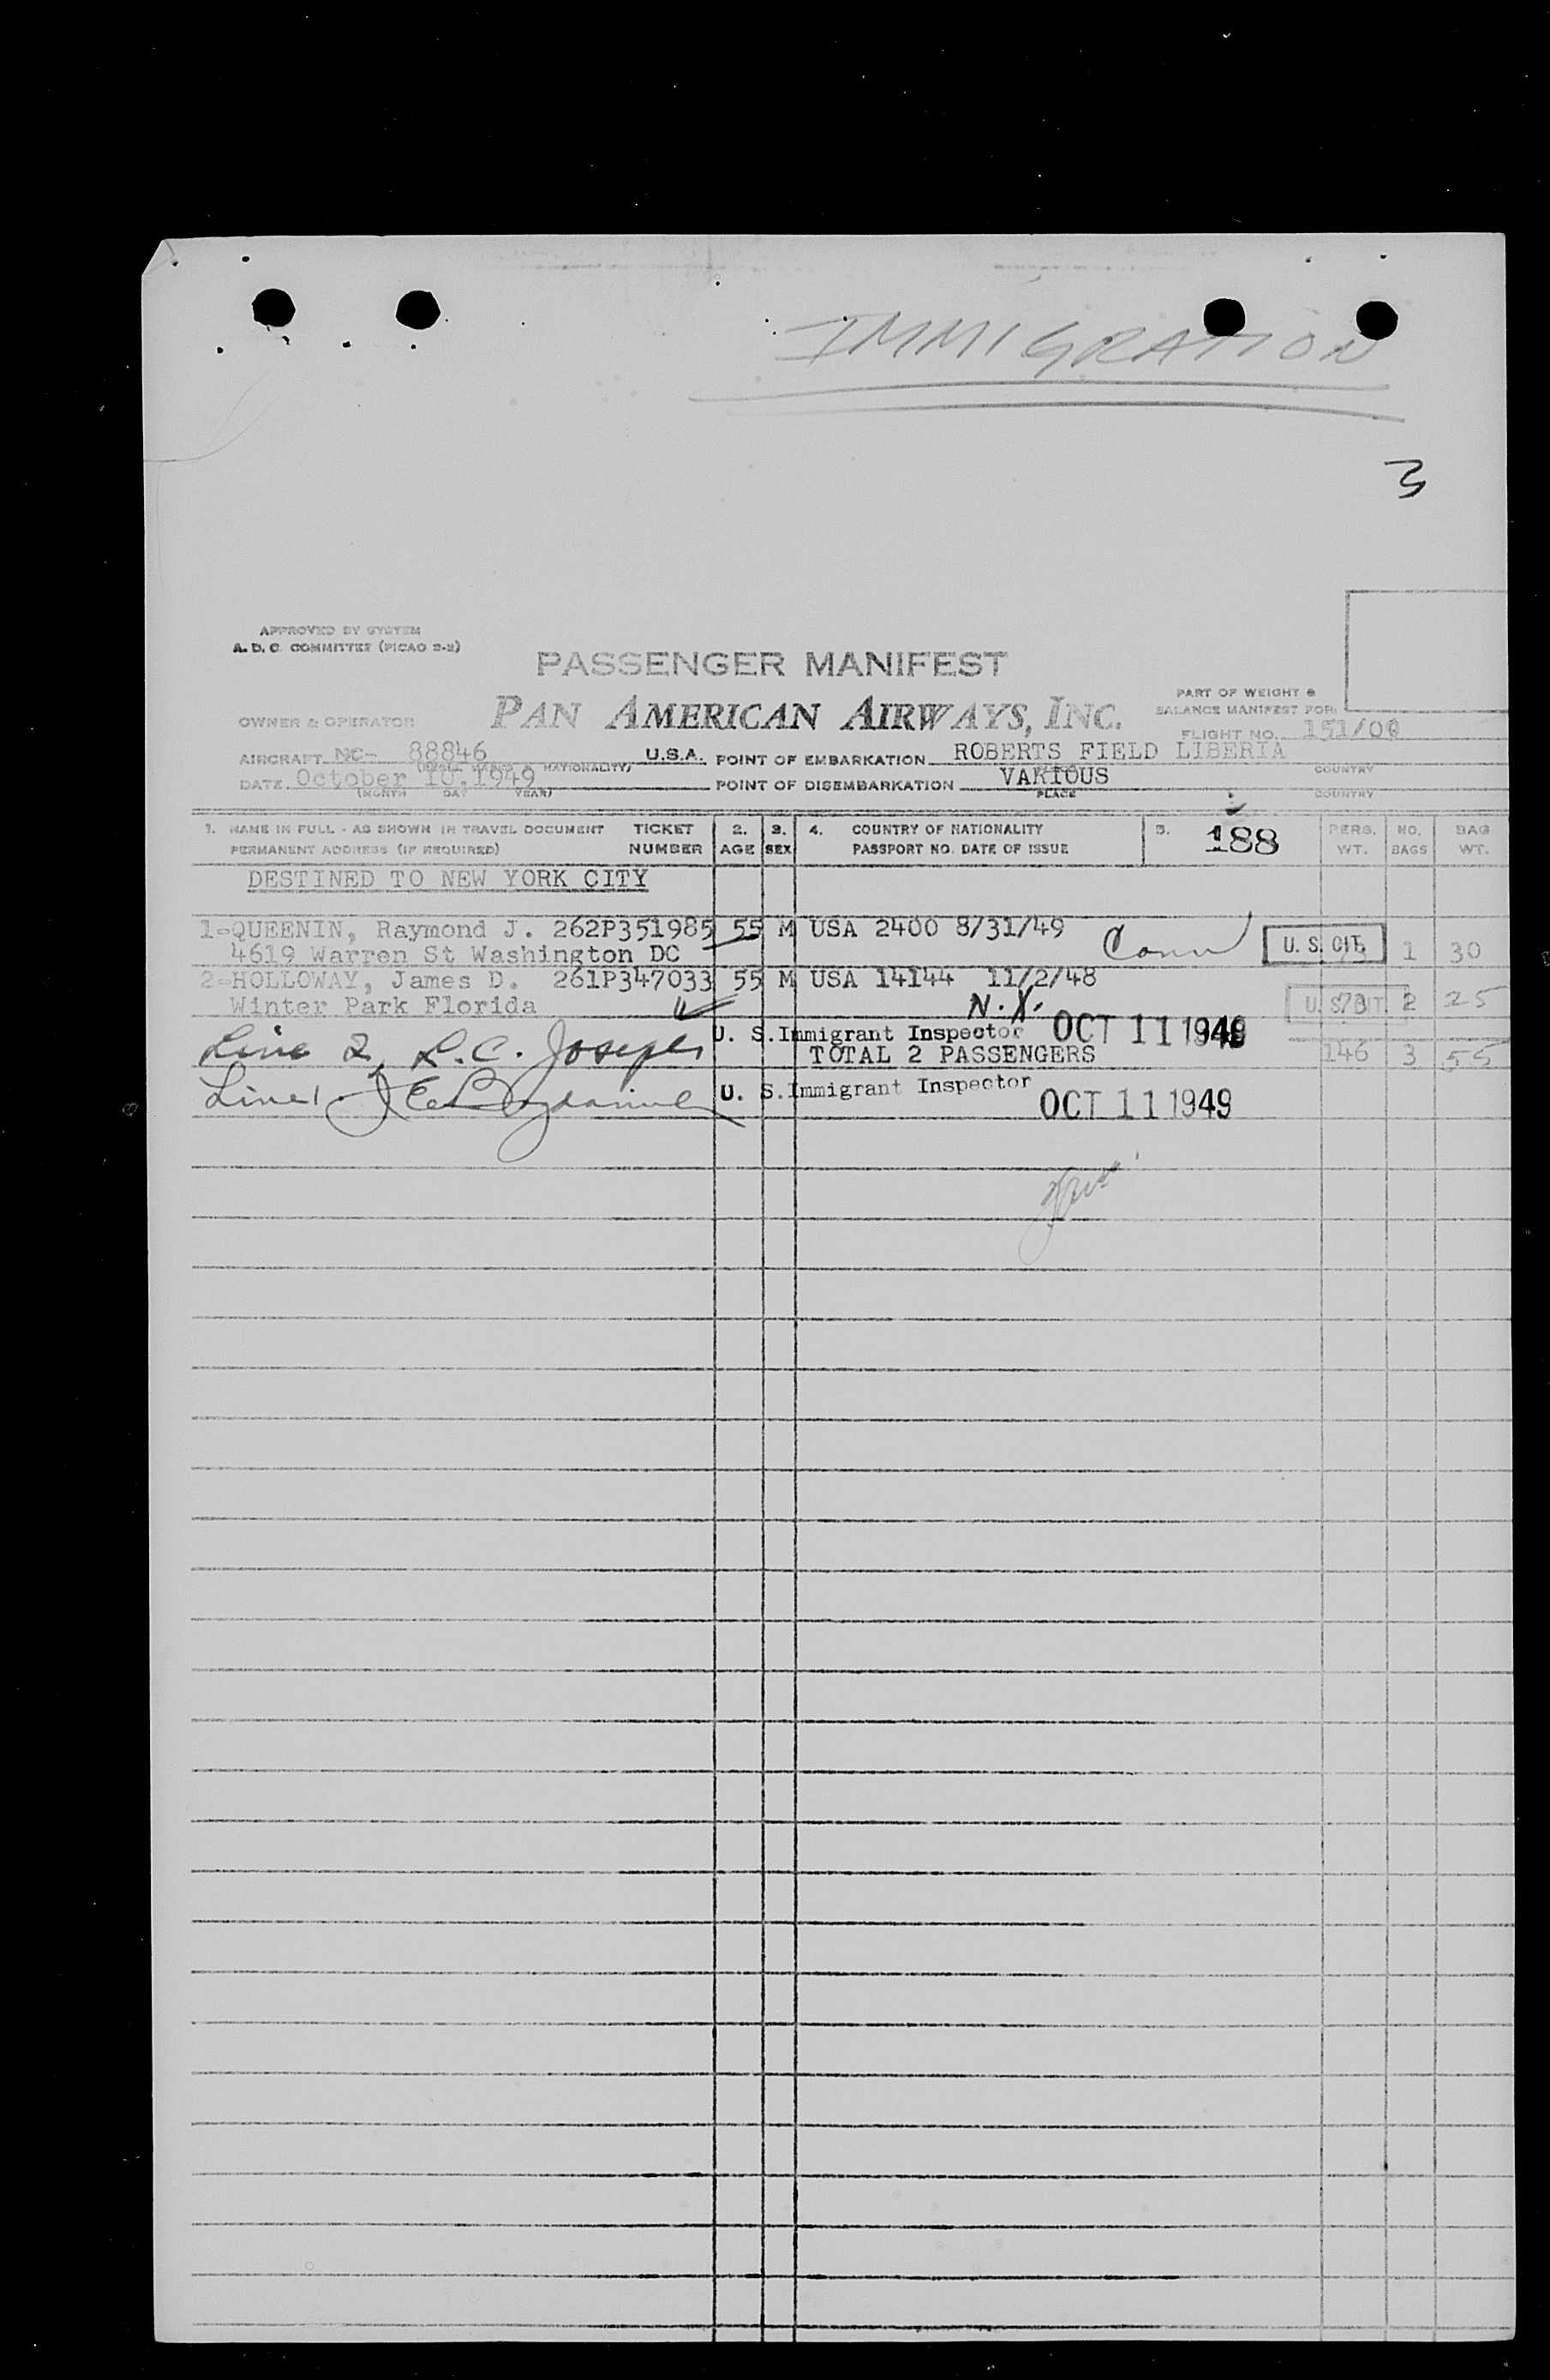 IMMIGRATION
3
APPROVED BY SYSTEM
A. D. C. COMMITTEE (PICAO 2-2)
PASSENGER MANIFEST
PART OF WEIGHT &
BALANCE MANIFEST FOR:
OWNER & OPERATOR PAN AMERICAN AIRWAYS, INC.
FLIGHT NO. 151/09
AIRCRAFT NC- 88846 U.S.A. POINT OF EMBARKATION ROBERTS FIELD LIBERIA
NATIONALITY) COUNTRY
DATE October 10.1949 POINT OF DISEMBARKATION VARIOUS
(MONTH DAY YEAR) PLACE COUNTRY
1. NAME IN FULL - AS SHOWN IN TRAVEL DOCUMENT TICKET 2. 3. 4. COUNTRY OF NATIONALITY 5. 188 PERS. NO. BAG
PERMANENT ADDRESS (IF REQUIRED) NUMBER AGE SEX PASSPORT NO. DATE OF ISSUE WT. BAGS WT.
DESTINED TO NEW YORK CITY
1-QUEENIN, Raymond J. 262P351985 55 M USA 2400 8/31/49
4619 Warren St Washington DC Conn U. S. CIT. 1 30
2-HOLLOWAY, James D. 261P347033 55 M USA 14144 11/2/48
Winter Park Florida N.Y. U. S. CIT. 2 25
Line 2, L.C. Joseph U. S. Immigrant Inspector OCT 11 1949
TOTAL 2 PASSENGERS 146 3 55
Line 1 U. S. Immigrant Inspector OCT 11 1949